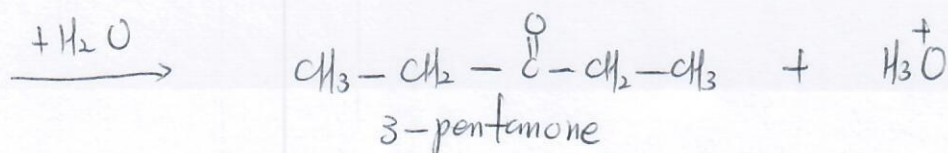 +H₂O
O
CH₃ — CH₂ — C — CH₂ — CH₃ + H₃O⁺
3-pentanone